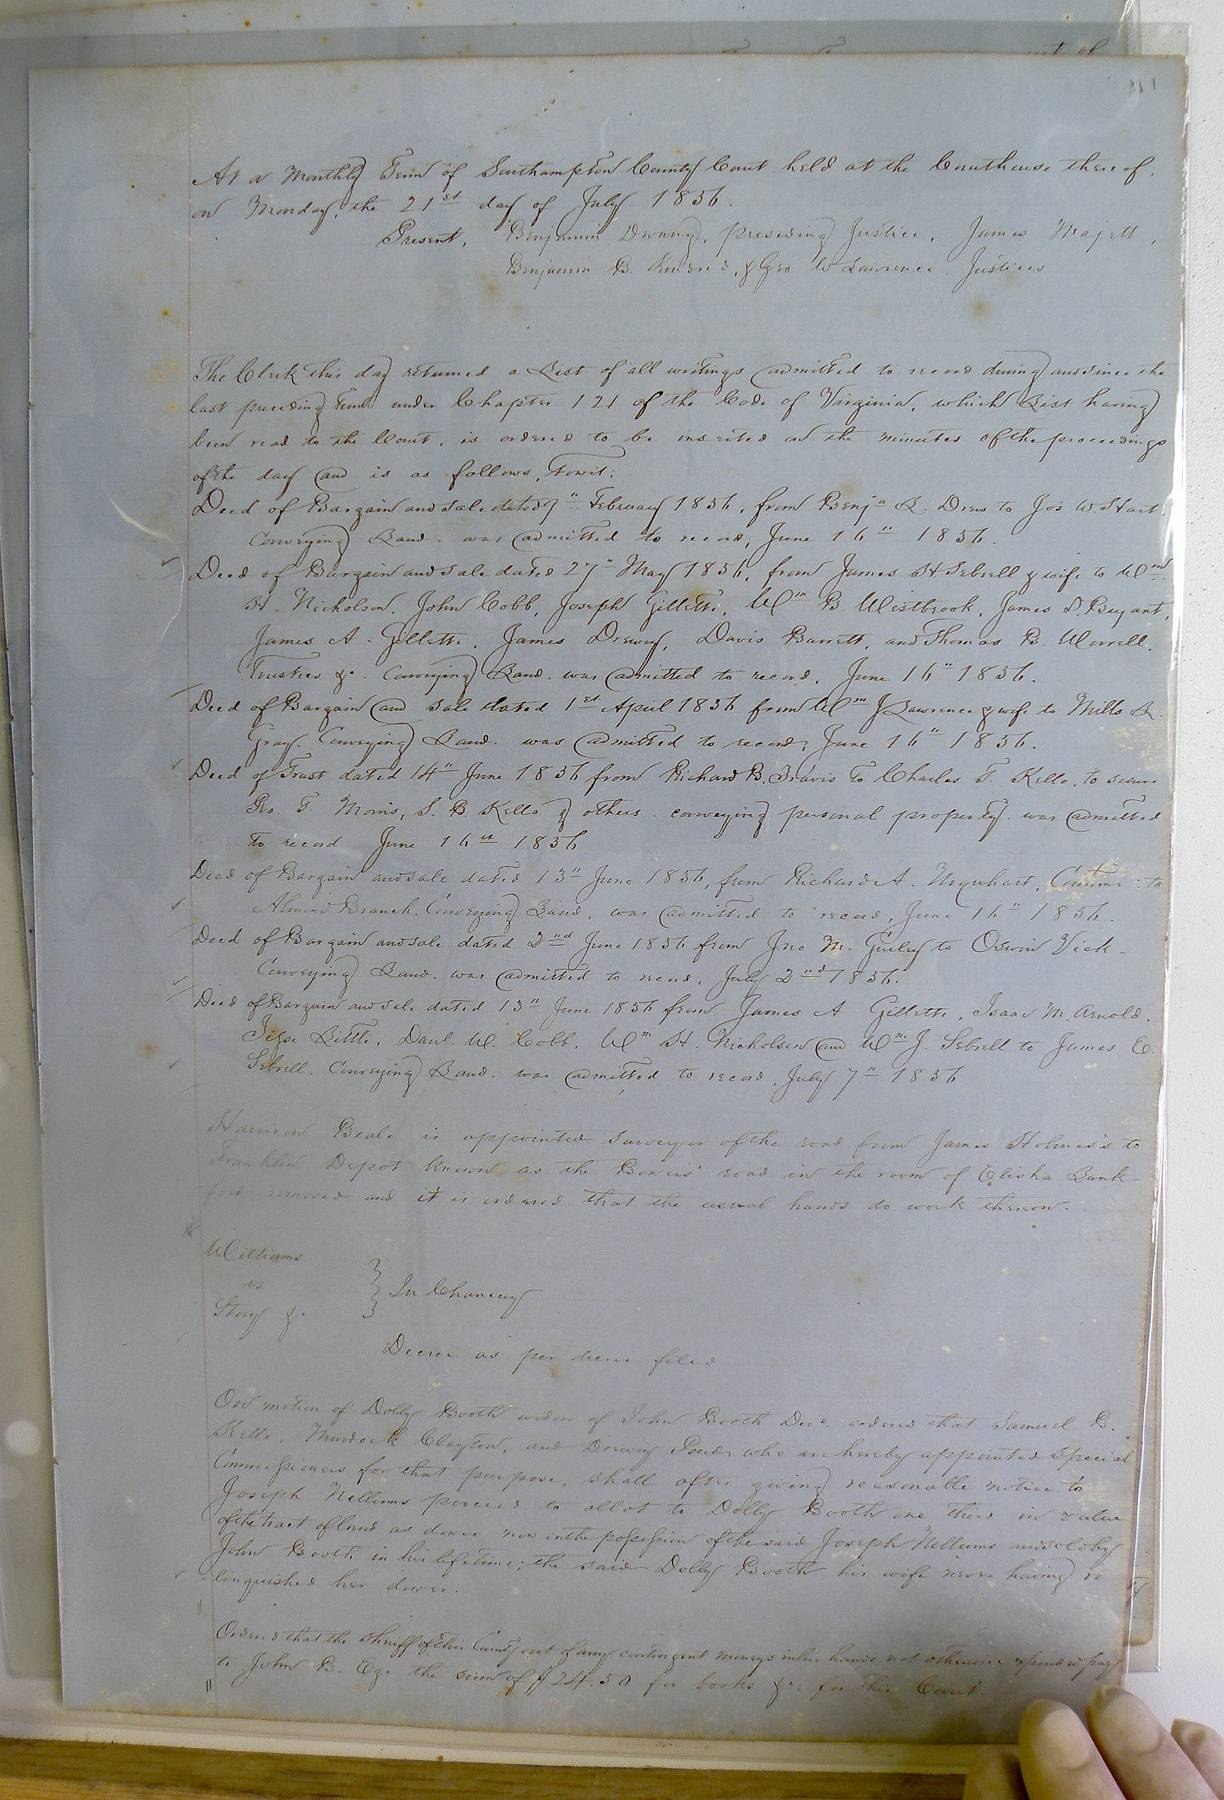 At a Monthly Term of Southampton County Court held at the Courthouse thereof,
on Monday, the 21st day of July 1856.
Present, Benjamin Drewry, presiding Justice, James Majett,
Benjamin B. & Geo W Lawrence Justices
The Clerk this day returned a List of all writings admitted to record during and since the
last preceding Term under Chapter 121 of the Code of Virginia, which List having
been read to the Court, is ordered to be inserted on the minutes of the proceedings
of the day and is as follows, Towit:
Deed of Bargain and sale dated 7" February 1856, from Benja R. Drew to Jos W. Hart
Conveying Land. was admitted to record, June 16" 1856.
Deed of Bargain and sale dated 27" May 1856, from James H Sebrell & wife to Wm
H. Nicholson, John Cobb, Joseph Gillette, Wm B Westbrook, James D. Bryant,
James A. Gillette, James Drewry, Davis Barrett, and Thomas B. Worrell.
Trustees &c. Conveying Land. was admitted to record, June 16" 1856.
Deed of Bargain and sale dated 1st April 1856 from Wm J Lawrence & wife to Mills R.
Gray. Conveying Land. was admitted to record, June 16" 1856.
Deed of Trust dated 14" June 1856 from Richard B. Travis to Charles F. Kello, to secure
Geo. T Morris, S. B Kello & others. conveying personal property. was admitted
to record June 16th 1856
Deed of Bargain and sale dated 13" June 1856, from Richard A. Urquhart, Commr: to
Almond Branch, Conveying Land, was admitted to record, June 16" 1856.
Deed of Bargain and sale dated 2nd June 1856 from Jno M. Gurley to Oswin Vick-
Conveying Land. was admitted to record, July 2nd 1856.
Deed of Bargain and sale dated 13" June 1856 from James A Gillette, Isaac M. Arnold,
Jesse Little, Danl. W. Cobb, Wm H. Nicholson and Wm J. Sebrell to James E.
Sebrell. Conveying Land. was admitted to record, July 7" 1856
Harrison Beale is appointed Surveyor of the road from James Holmes's to
Franklin Depot known as the Bowers' road in the room of Elisha Lank-
ford removed and it is ordered that the usual hands do work thereon.
Williams
vs } In Chancery
Story &c
Decree as per decree filed
On motion of Dolly Booth widow of John Booth Decd ordered that Samuel B.
Kello, Murdock Clayton, and Drewry who are hereby appointed special
Commissioners for that purpose, shall after giving reasonable notice to
Joseph Nelliums proceed to allot to Dolly Booth one third in value
of the tract of land as dower now in the possession of the said Joseph Nelliums and sold by
John Booth in his lifetime; the said Dolly Booth his wife never having re
-linquished her dower.
Ordered that the Sheriff of this County out of any contingent moneys in his hands not otherwise pay
to John B. Ege the sum of $24.50 for books &c. for this Court.